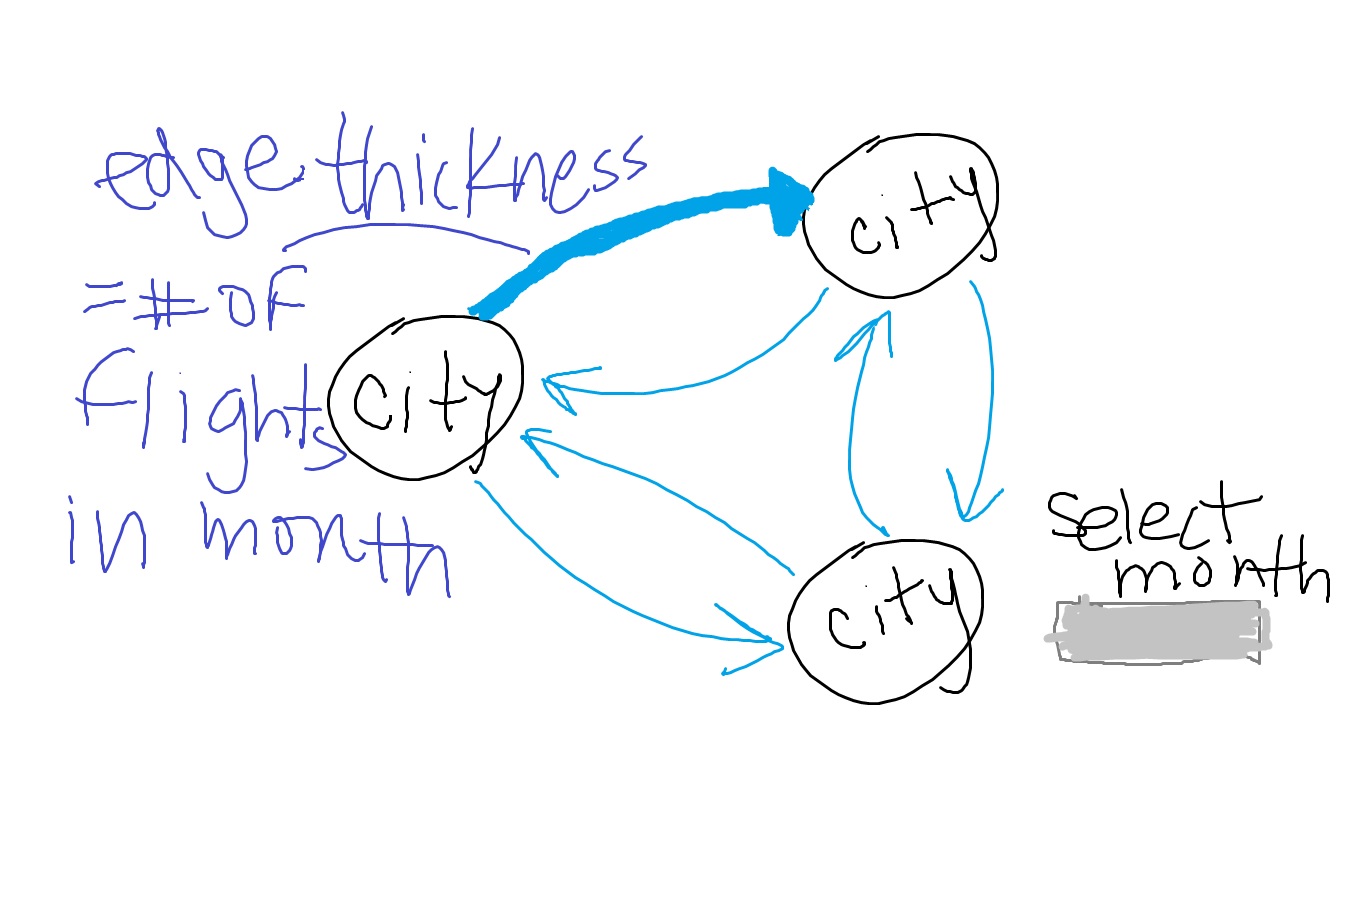 edge thickness
= # of
flights
in month
city
city
city
select
month